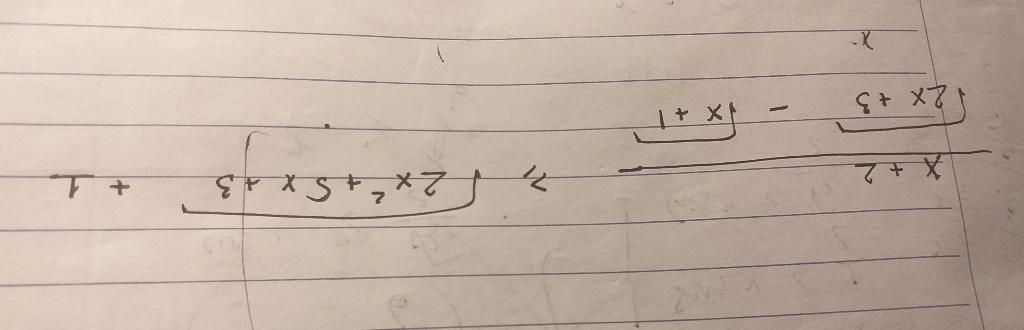 x + 2
√(2x + 3) - √(x + 1) ≥ √(2x² + 5x + 3) + 1
x